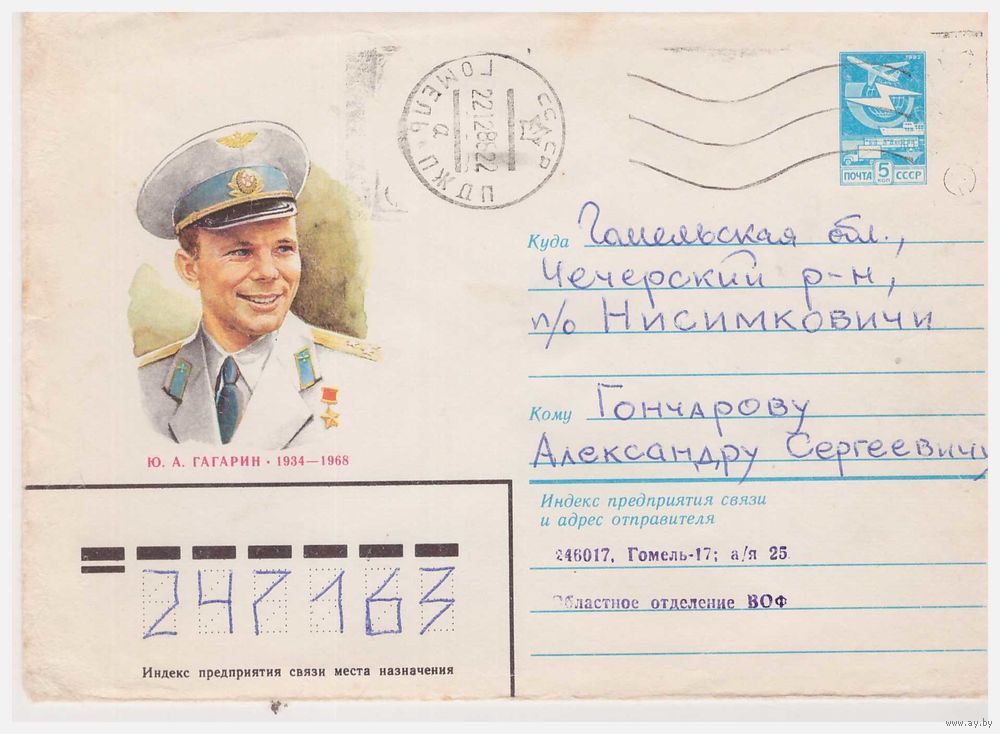 СССР
ГОМЕЛЬ ПЖДП
22128 22
а
1982
ПОЧТА 5 КОП СССР
Куда Гомельская обл.,
Чечерский р-н,
п/о Нисимковичи
Кому Гончарову
Александру Сергеевичу
Ю. А. ГАГАРИН · 1934—1968
Индекс предприятия связи
и адрес отправителя
246017, Гомель-17; а/я 25
Областное отделение ВОФ
247163
Индекс предприятия связи места назначения
www.ay.by